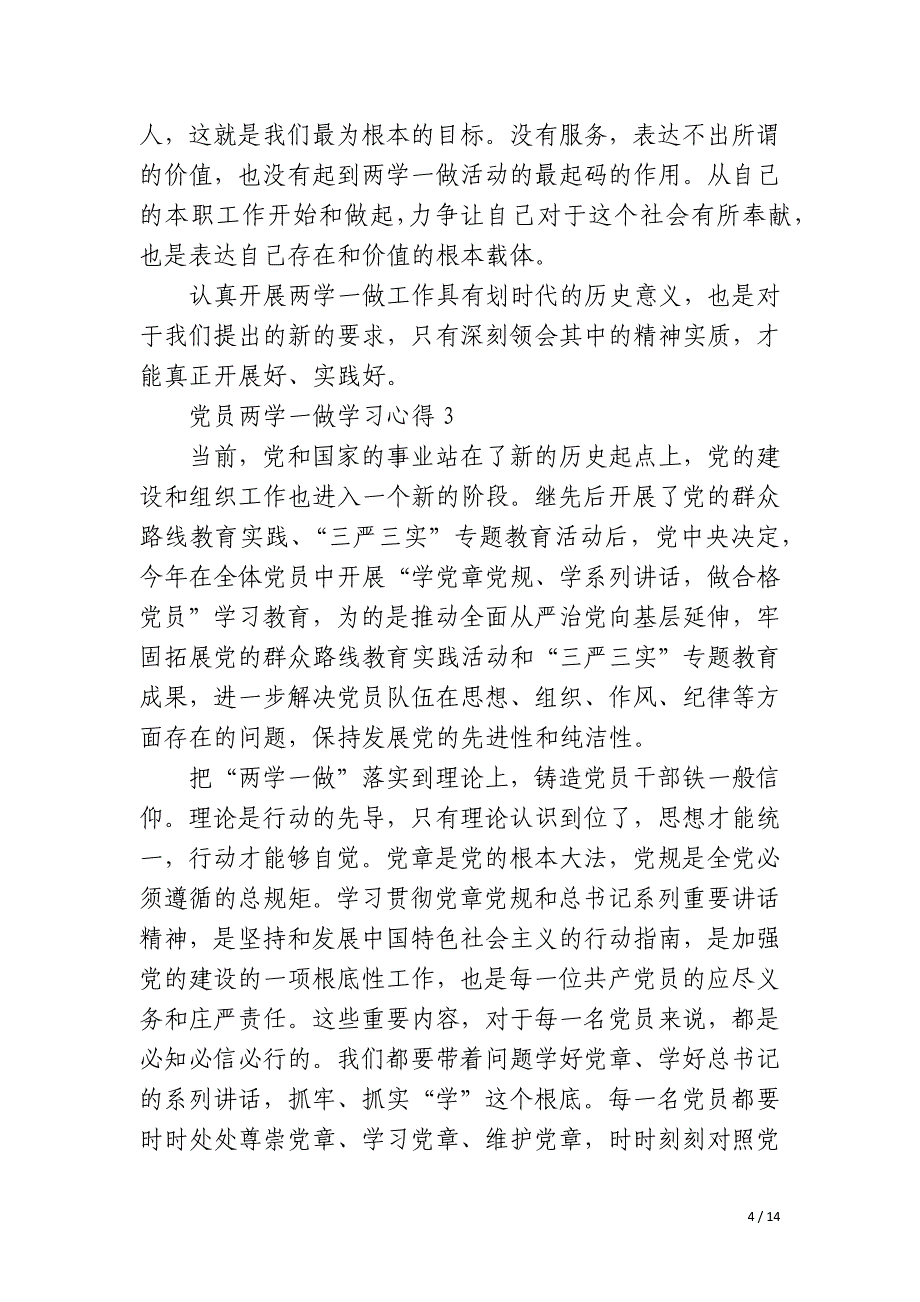 人，这就是我们最为根本的目标。没有服务，表达不出所谓
的价值，也没有起到两学一做活动的最起码的作用。从自己
的本职工作开始和做起，力争让自己对于这个社会有所奉献，
也是表达自己存在和价值的根本载体。
认真开展两学一做工作具有划时代的历史意义，也是对
于我们提出的新的要求，只有深刻领会其中的精神实质，才
能真正开展好、实践好。
党员两学一做学习心得 3
当前，党和国家的事业站在了新的历史起点上，党的建
设和组织工作也进入一个新的阶段。继先后开展了党的群众
路线教育实践、“三严三实”专题教育活动后，党中央决定，
今年在全体党员中开展“学党章党规、学系列讲话，做合格
党员”学习教育，为的是推动全面从严治党向基层延伸，牢
固拓展党的群众路线教育实践活动和“三严三实”专题教育
成果，进一步解决党员队伍在思想、组织、作风、纪律等方
面存在的问题，保持发展党的先进性和纯洁性。
把“两学一做”落实到理论上，铸造党员干部铁一般信
仰。理论是行动的先导，只有理论认识到位了，思想才能统
一，行动才能够自觉。党章是党的根本大法，党规是全党必
须遵循的总规矩。学习贯彻党章党规和总书记系列重要讲话
精神，是坚持和发展中国特色社会主义的行动指南，是加强
党的建设的一项根底性工作，也是每一位共产党员的应尽义
务和庄严责任。这些重要内容，对于每一名党员来说，都是
必知必信必行的。我们都要带着问题学好党章、学好总书记
的系列讲话，抓牢、抓实“学”这个根底。每一名党员都要
时时处处尊崇党章、学习党章、维护党章，时时刻刻对照党
4 / 14